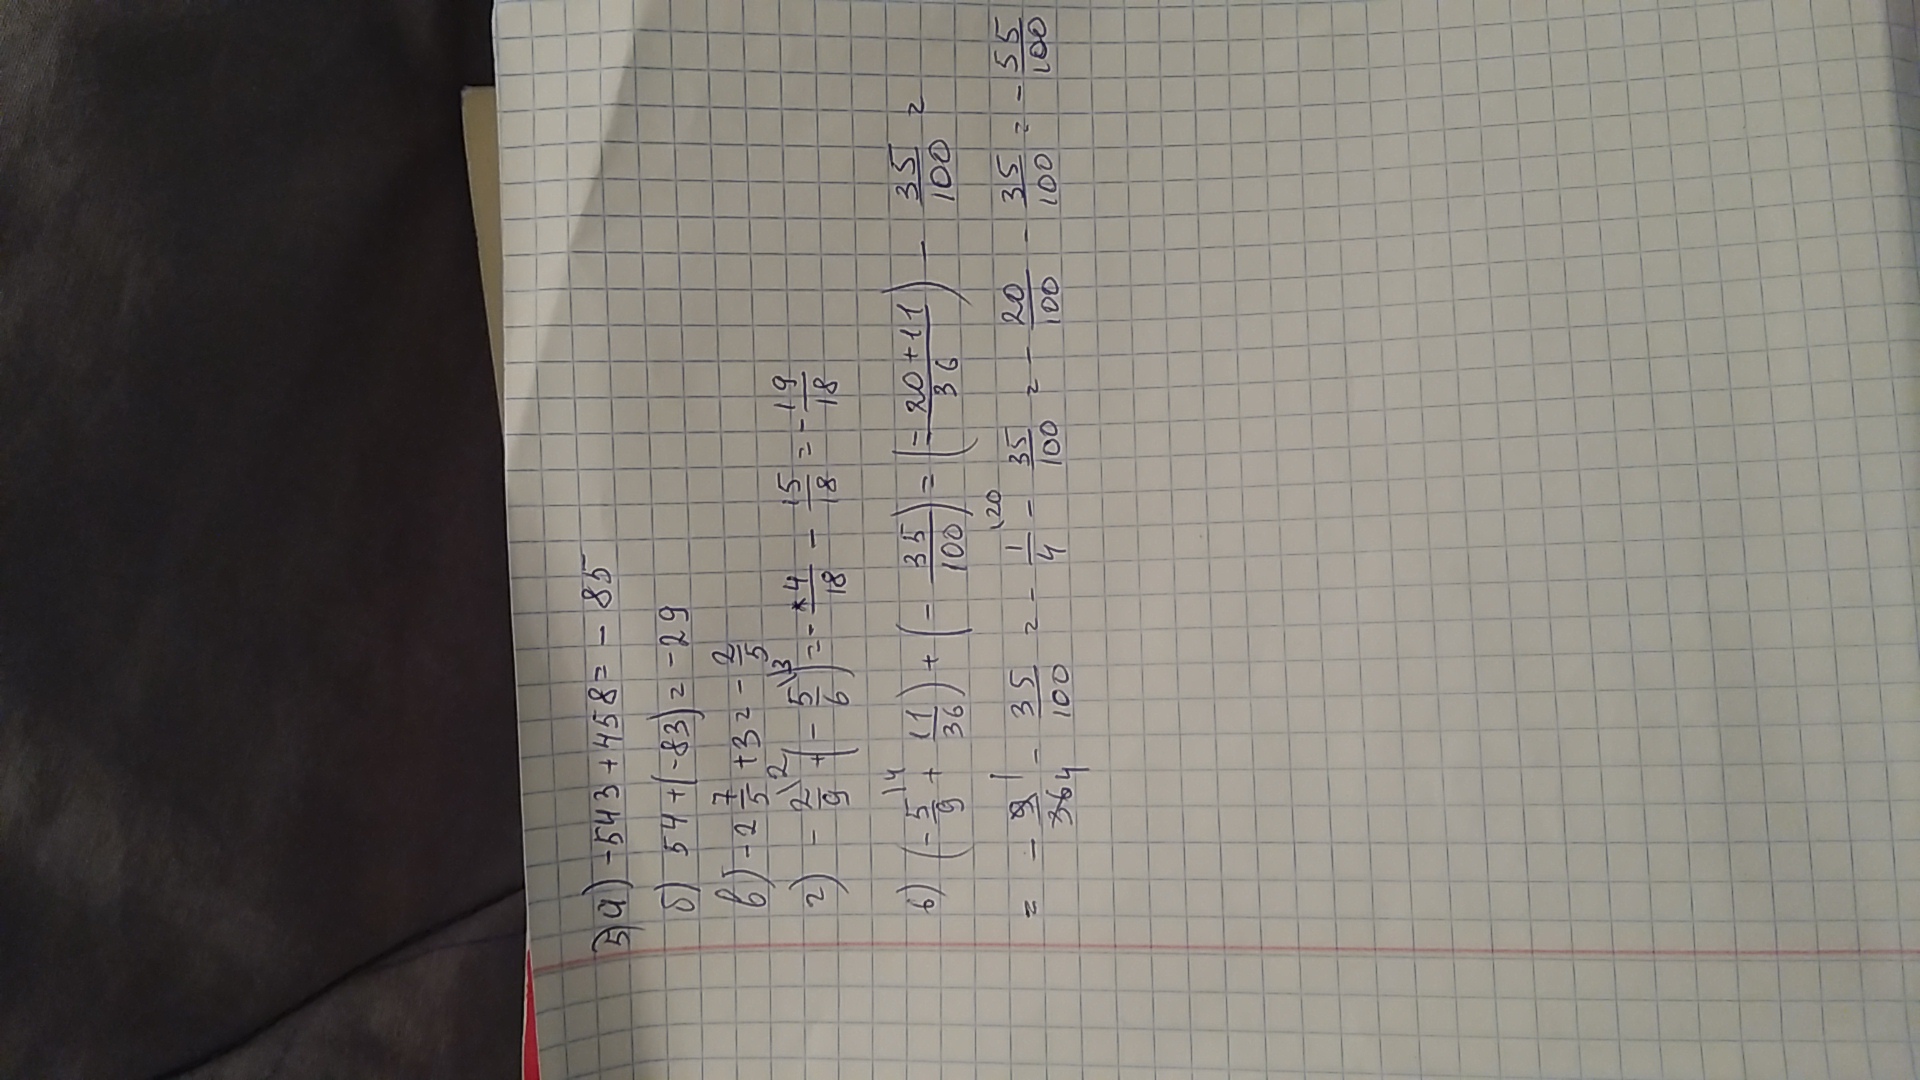 5) а) -543 + 458 = - 85
б) 54 + (-83) = -29
в) -2 7/5 + 3 = - 2/5
г) - 2/9 \2 + (- 5/6 \3) = - 4/18 - 15/18 = - 19/18
6) (- 5/9 \4 + 11/36) + (- 35/100) = (- 20+11/36) - 35/100 =
= - 9/36 1/4 - 35/100 = - 1/4 \20 - 35/100 = - 20/100 - 35/100 = - 55/100